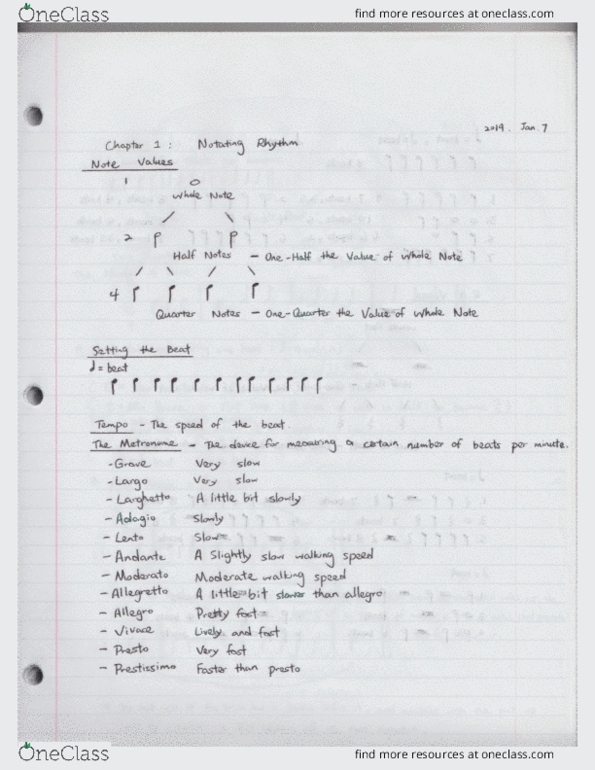 OneClass
find more resources at oneclass.com
2019. Jan. 7
Chapter 1 : Notating Rhythm
Note Values
1
Whole Note
2
Half Notes - One-Half the Value of Whole Note
4
Quarter Notes - One-Quarter the Value of Whole Note
Setting the Beat
♩= beat
Tempo - The speed of the beat.
The Metronome - The device for measuring a certain number of beats per minute.
- Grave Very slow
- Largo Very slow
- Larghetto A little bit slowly
- Adagio Slowly
- Lento Slow
- Andante A Slightly slow walking speed
- Moderato Moderate walking speed
- Allegretto A little bit slower than allegro
- Allegro Pretty fast
- Vivace Lively and fast
- Presto Very fast
- Prestissimo Faster than presto
OneClass
find more resources at oneclass.com